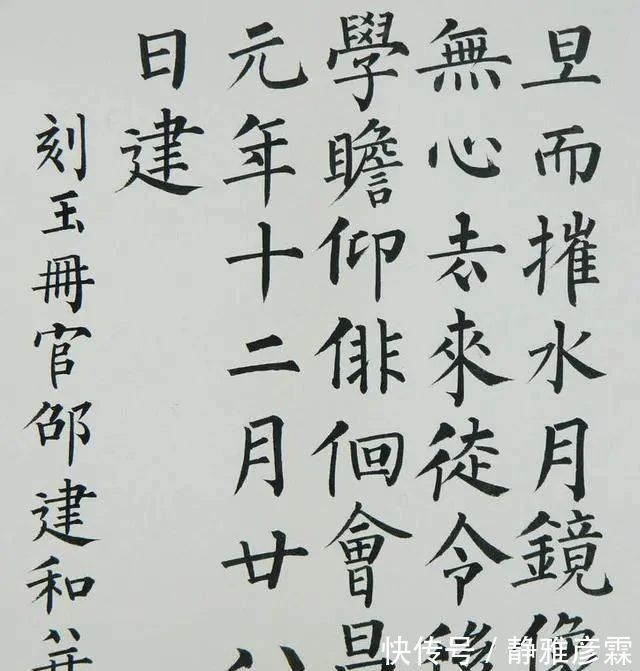 旦而摧水月鏡像
無心去來徒令後
學瞻仰俳佪會昌
元年十二月廿八
日建
刻玉冊官邵建和并
快传号/静雅彦霖